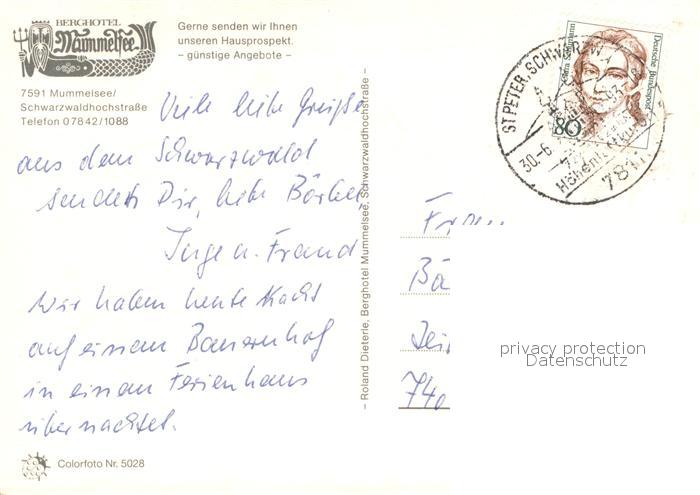 BERGHOTEL
Mummelsee
Gerne senden wir Ihnen
unseren Hausprospekt.
– günstige Angebote –
7591 Mummelsee/
Schwarzwaldhochstraße
Telefon 07842/1088
Viele liebe Grüße
aus dem Schwarzwald
senden Dir, liebe Bärbel
Inge u. Frand
Wir haben heute Nacht
auf einem Bauernhof
in einem Ferienhaus
übernachtet.
Colorfoto Nr. 5028
– Roland Dieterle, Berghotel Mummelsee, Schwarzwaldhochstraße –
Deutsche Bundespost
80
ST PETER, SCHWARZW
30.-6.
781
Frau
Bä
740
privacy protection
Datenschutz